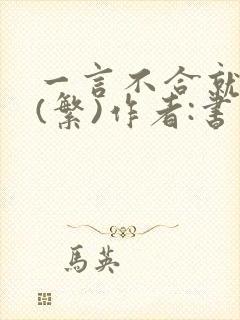 一言不合就
(繁)作者:書
馬英